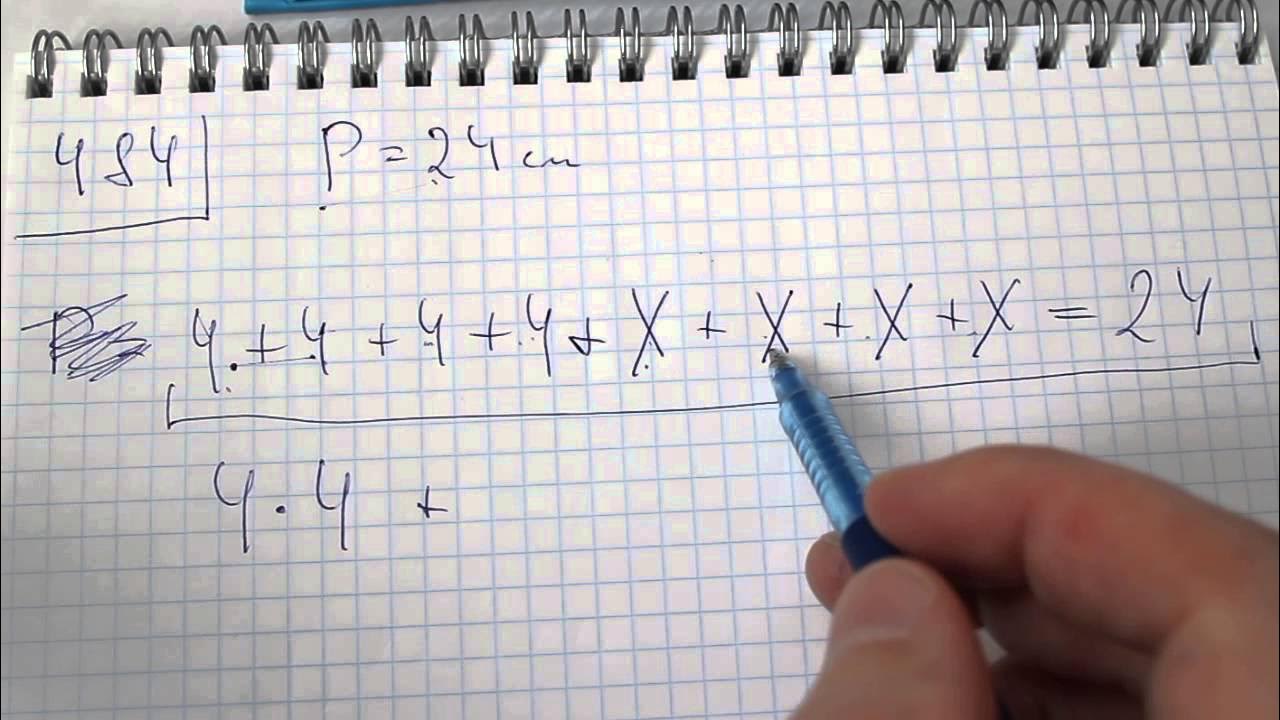 484 P = 24 см
4 + 4 + 4 + 4 + X + X + X + X = 24
4 · 4 +